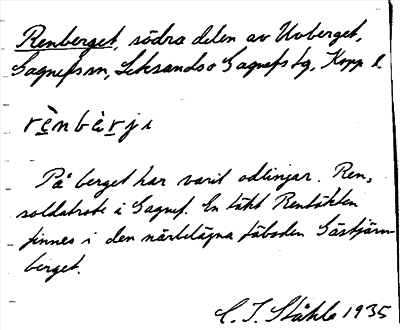 Renberget, södra delen av Uvberget,
Gagnefs sn, Leksands o Gagnefs tg, Kopp. l.
rènbàrji
På berget har varit odlingar. Ren,
soldatrote i Gagnef. En täkt Rentäkten
finnes i den närbelägna fäboden Gästjärn-
berget.
C. I. Ståhle 1935